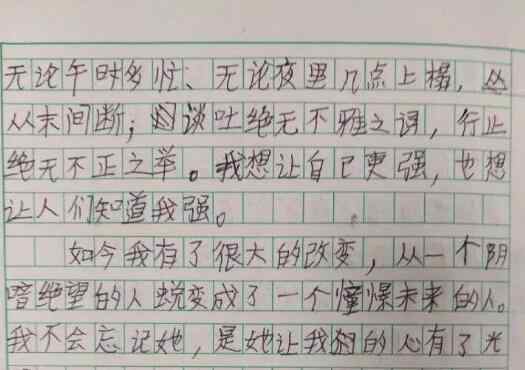 无论午时多忙、无论夜里几点上榻，
从未间断；谈吐绝无不雅之词，行止
绝无不正之举。我想让自己更强，也想
让人们知道我强。
如今我有了很大的改变，从一个阴
暗绝望的人蜕变成了一个憧憬未来的人。
我不会忘记她，是她让我的心有了光